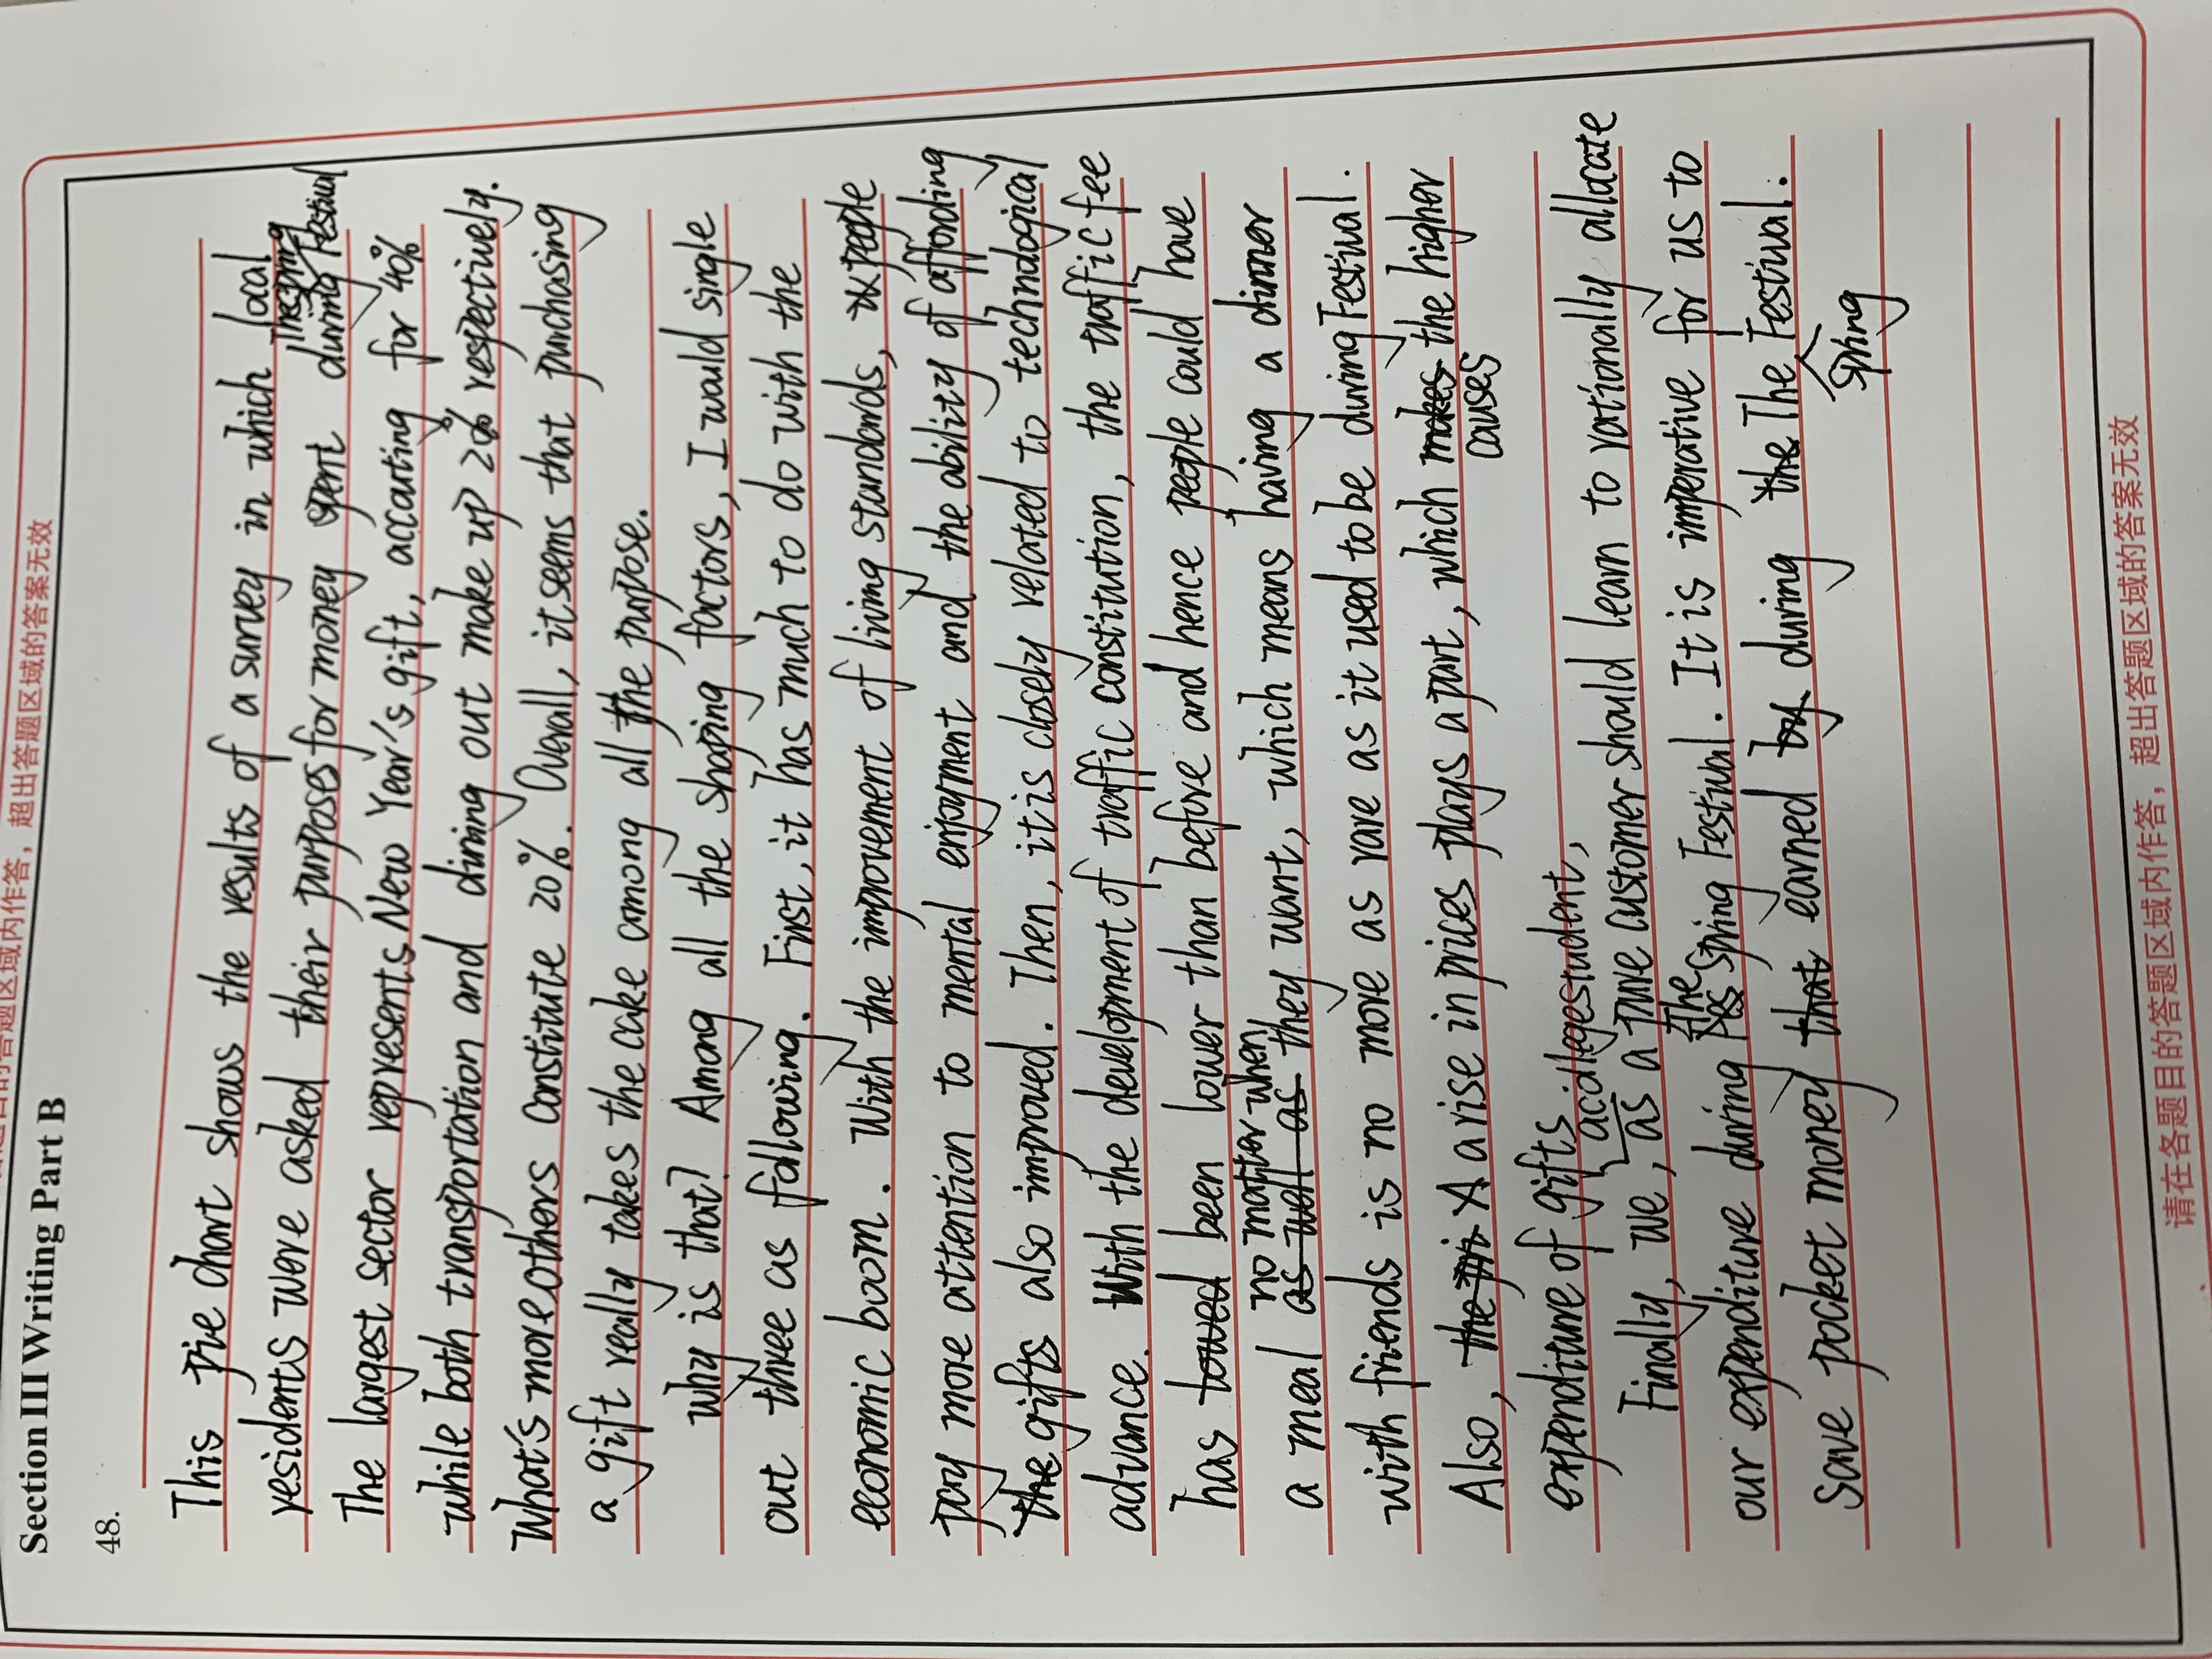 超出答题区域的答案无效
Section III Writing Part B
48.
This pie chart shows the results of a survey in which local
residents were asked their purposes for money spent during The Spring Festival
The largest sector represents New Year's gift, accounting for 40%
while both transportation and dining out make up 20% respectively.
What's more, others constitute 20%. Overall, it seems that purchasing
a gift really takes the cake among all the purpose.
Why is that? Among all the shaping factors, I would single
out three as following. First, it has much to do with the
economic boom. With the improvement of living standards, people
pay more attention to mental enjoyment and the ability of affording
the gifts also improved. Then, it is closely related to technological
advance. With the development of traffic constitution, the traffic fee
has towed been lower than before and hence people could have
a meal as well as no matter when they want, which means having a dinner
with friends is no more as rare as it used to be during Festival.
Also, the pri A arise in prices plays a part, which makes causes the higher
expenditure of gifts.
Finally, we, as a college student, as a pure customer should learn to rationally allocate
our expenditure during The Spring Festival. It is imperative for us to
save pocket money that earned by during the The Spring Festival.
请在各题目的答题区域内作答，超出答题区域的答案无效